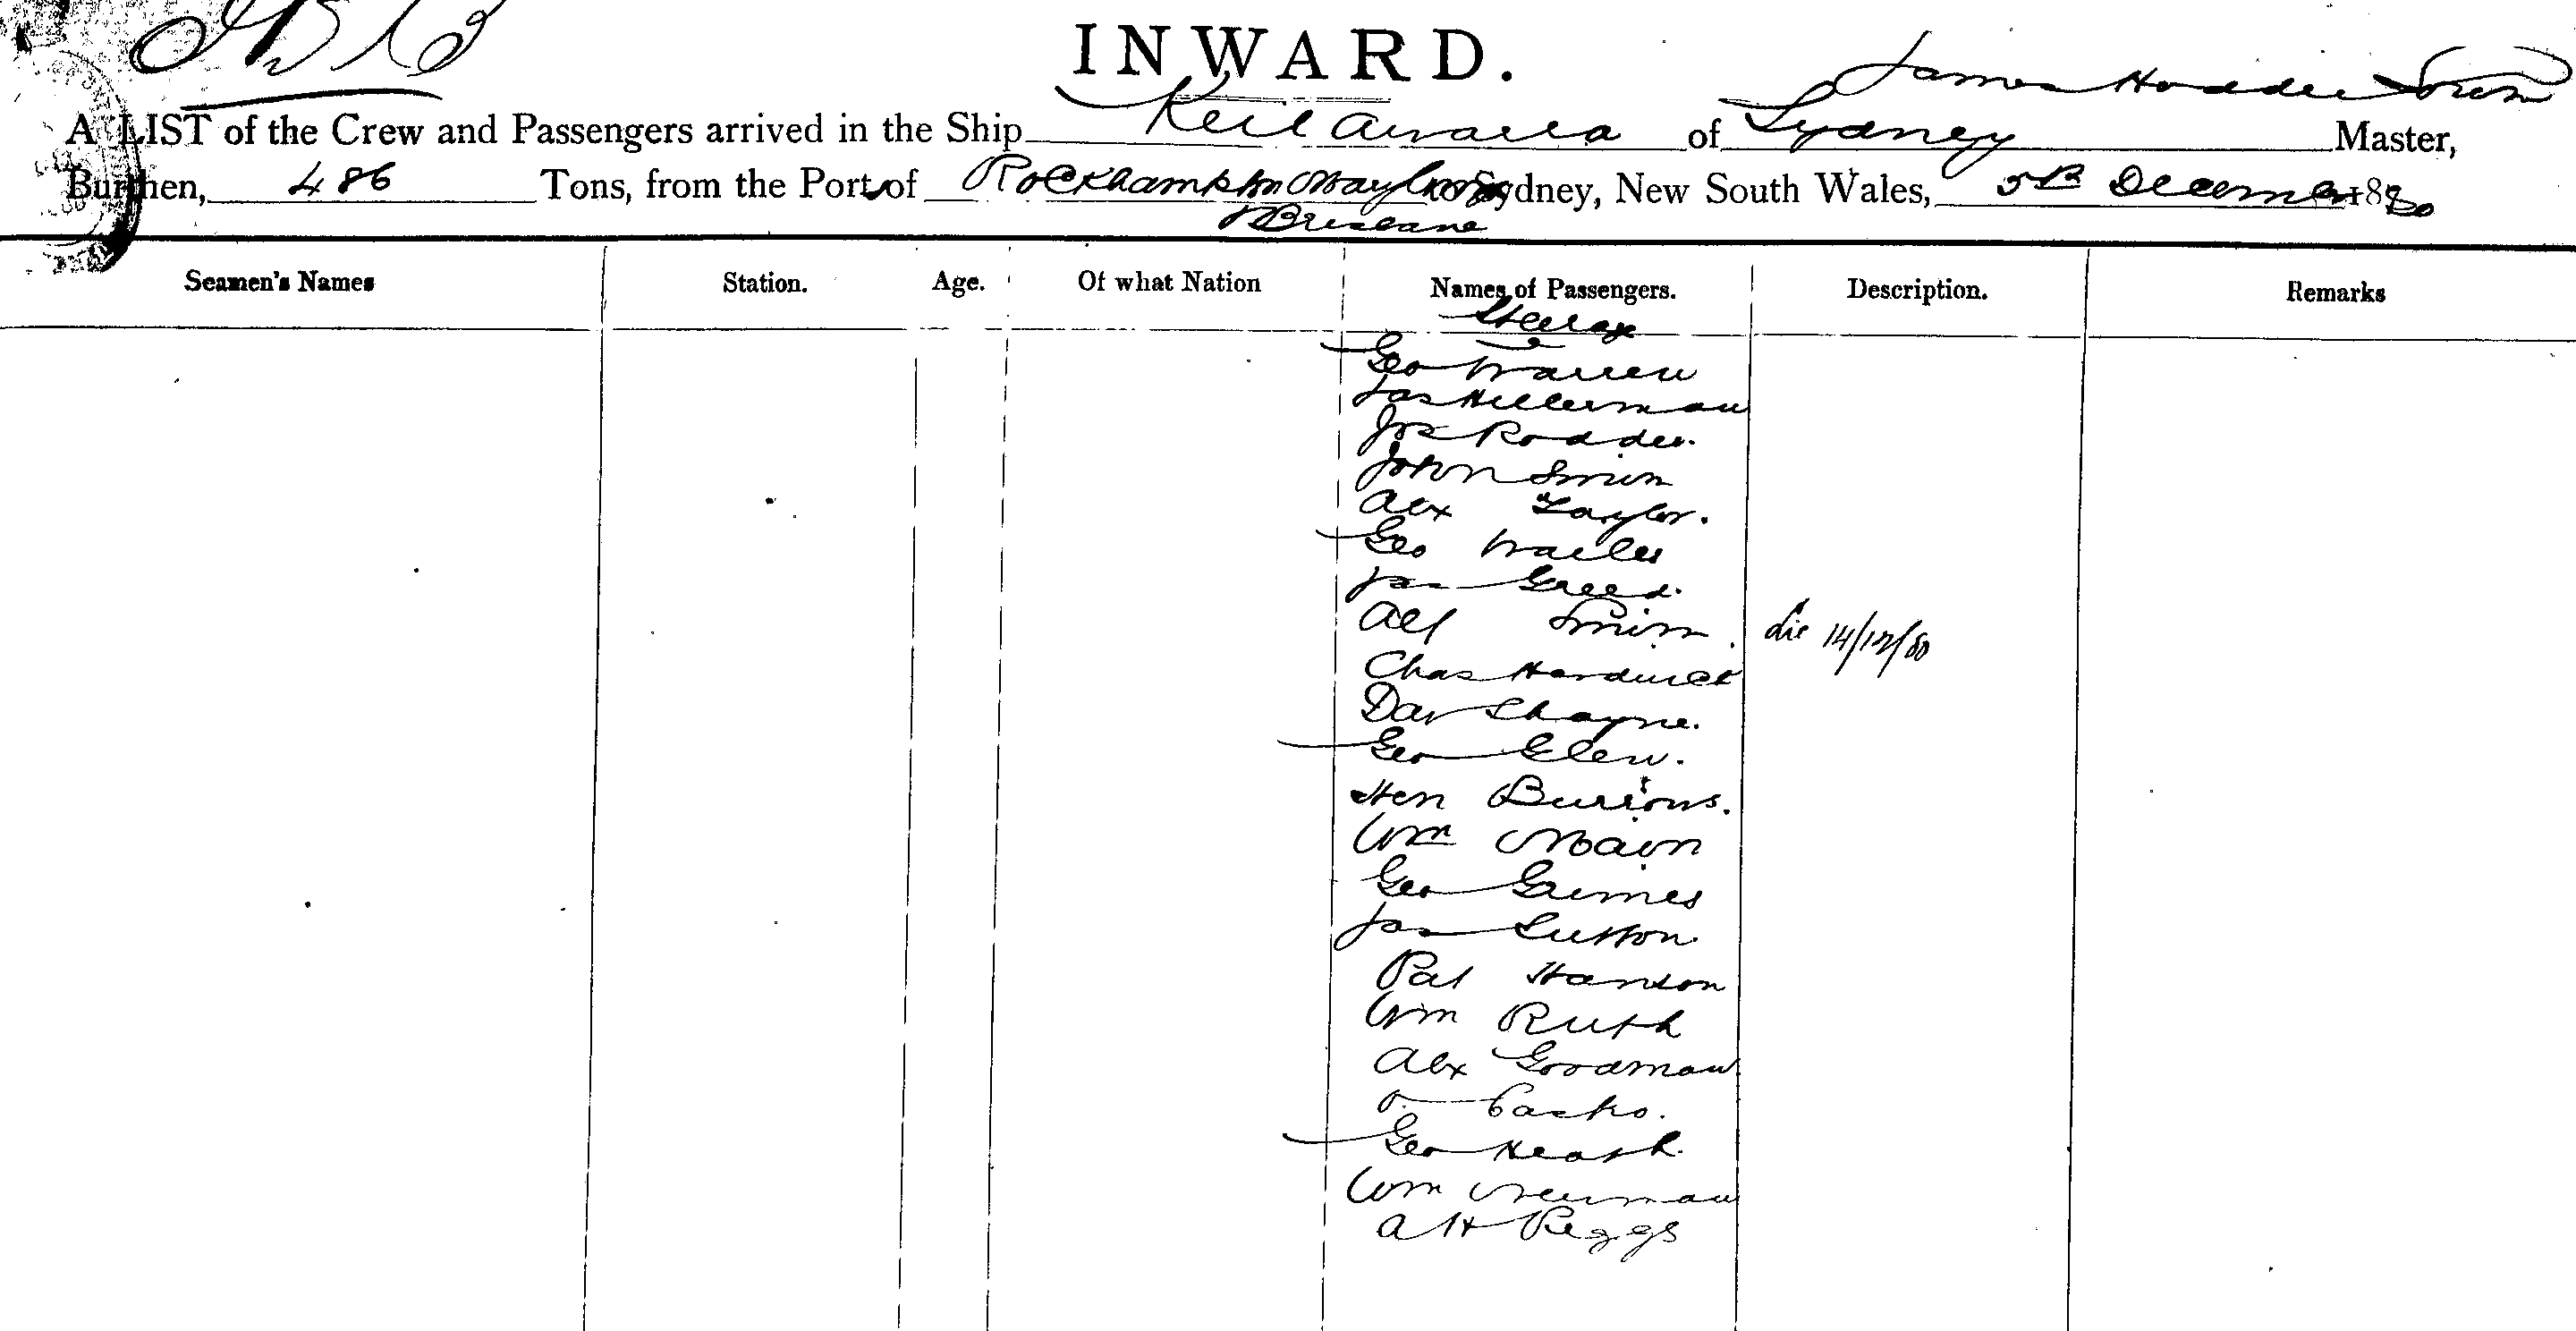 INWARD.
A LIST of the Crew and Passengers arrived in the Ship Keilawarra of Sydney James Hodder Master,
Burthen, 486 Tons, from the Ports of Rockhampton Maryboro to Sydney, New South Wales, 5th December 1880
& Brisbane
Seamen's Names Station. Age. Of what Nation Names of Passengers. Description. Remarks
Steerage
Geo Warren
Jas Hillerman
Jos Rodder.
John Smith
Alex Taylor.
Geo
Jas Greed.
Alf Smith 14/12/80
Chas Hardwick
Dav Shayne.
Geo Glew.
Hen Burrows.
Wm Main
Geo Grimes
Jas Sutton
Pat Hanson
Wm Ruth
Alex Goodman
Geo Heath.
Wm Newman
A H Peggs